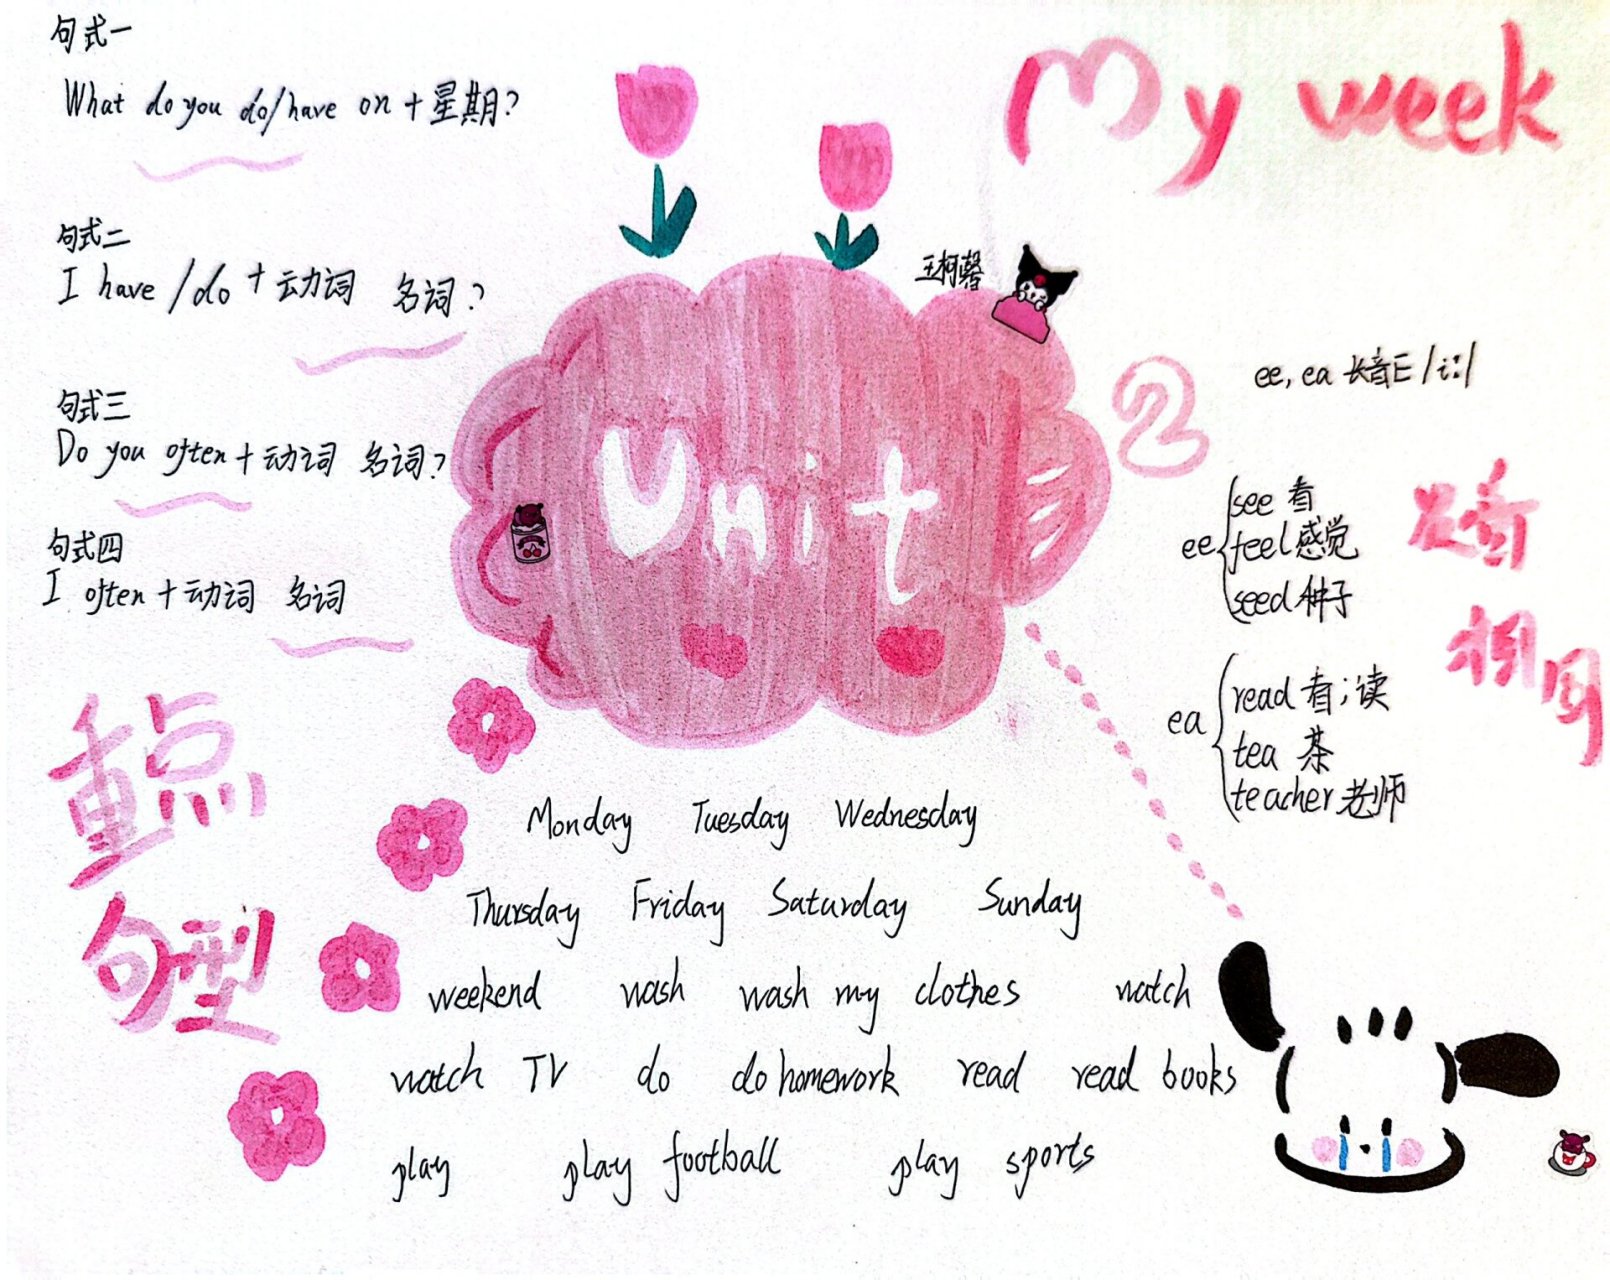 My week
Unit 2
王柯馨
句式一
What do you do/have on + 星期?
句式二
I have /do + 动词 名词?
句式三
Do you often + 动词 名词?
句式四
I often + 动词 名词
重点
句型
ee, ea 长音E /i:/
ee
see 看
feel 感觉
seed 种子
ea
read 看;读
tea 茶
teacher 老师
发音
相同
Monday Tuesday Wednesday
Thursday Friday Saturday Sunday
weekend wash wash my clothes watch
watch TV do do homework read read books
play play football play sports